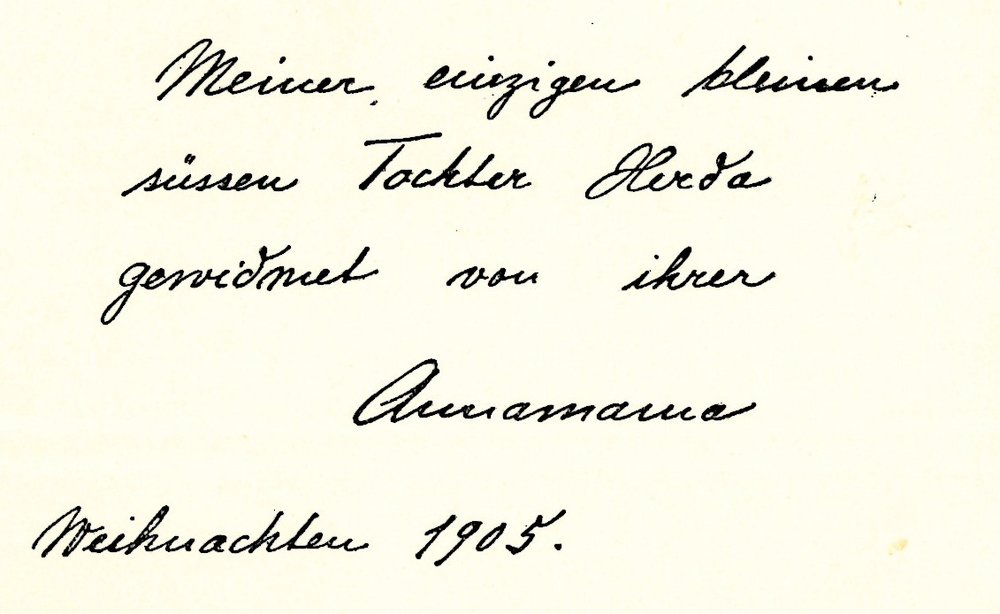 Meiner einzigen kleinen
süssen Tochter Herda
gewidmet von ihrer
Annamama
Weihnachten 1905.